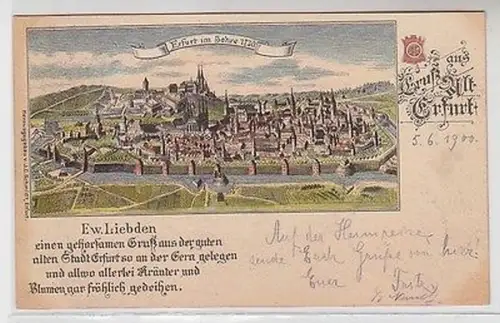 Erfurt im Jahre 1730
Gruß aus
Alt-
Erfurt.
5.6.1900.
Ew. Liebden
einen gehorsamen Gruß aus der guten
alten Stadt Erfurt so an der Gera gelegen
und allwo allerlei Kräuter und
Blumen gar fröhlich gedeihen.
Auf der Heimreise
sende Euch Grüße von hier!
Euer